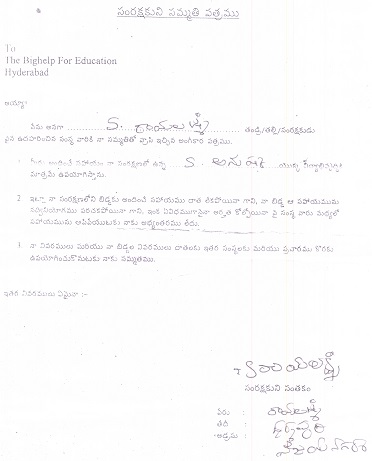 సంరక్షకుని సమ్మతి పత్రము
To
The Bighelp For Education
Hyderabad
అయ్యా
నేను అనగా S. రాయలక్ష్మి తండ్రి/తల్లి/సంరక్షకుడు
పైన ఉదహరించిన సంస్థ వారికి నా సమ్మతితో వ్రాసి ఇచ్చిన అంగీకార పత్రము.
1. మీరు అందించే సహాయం నా సంరక్షణలో ఉన్న S. అనుష యొక్క
మాత్రమే ఉపయోగిస్తాను.
2. ఇట్లా నా సంరక్షణలోని బిడ్డకు అందించే సహాయము దాత లేకపోయినా గాని, నా బిడ్డ ఆ సహాయమును
సద్వినియోగము పరచకపోయినా గాని, ఇంక ఏవిధముగానైనా అర్హత కోల్పోయినా పై సంస్థ వారు మధ్యలో
సహాయమును ఆపివేయుటకు నాకు అభ్యంతరము లేదు.
3. నా వివరములు మరియు నా బిడ్డల వివరములు దాతలకు ఇతర సంస్థలకు మరియు ప్రచారము కొరకు
ఉపయోగించుకొనుటకు నాకు సమ్మతము.
ఇతర వివరములు ఏమైనా :-
S రాయలక్ష్మి
సంరక్షకుని సంతకం
పేరు : రాయలక్ష్మి
తేది :
అడ్రసు : విజయ నగారా